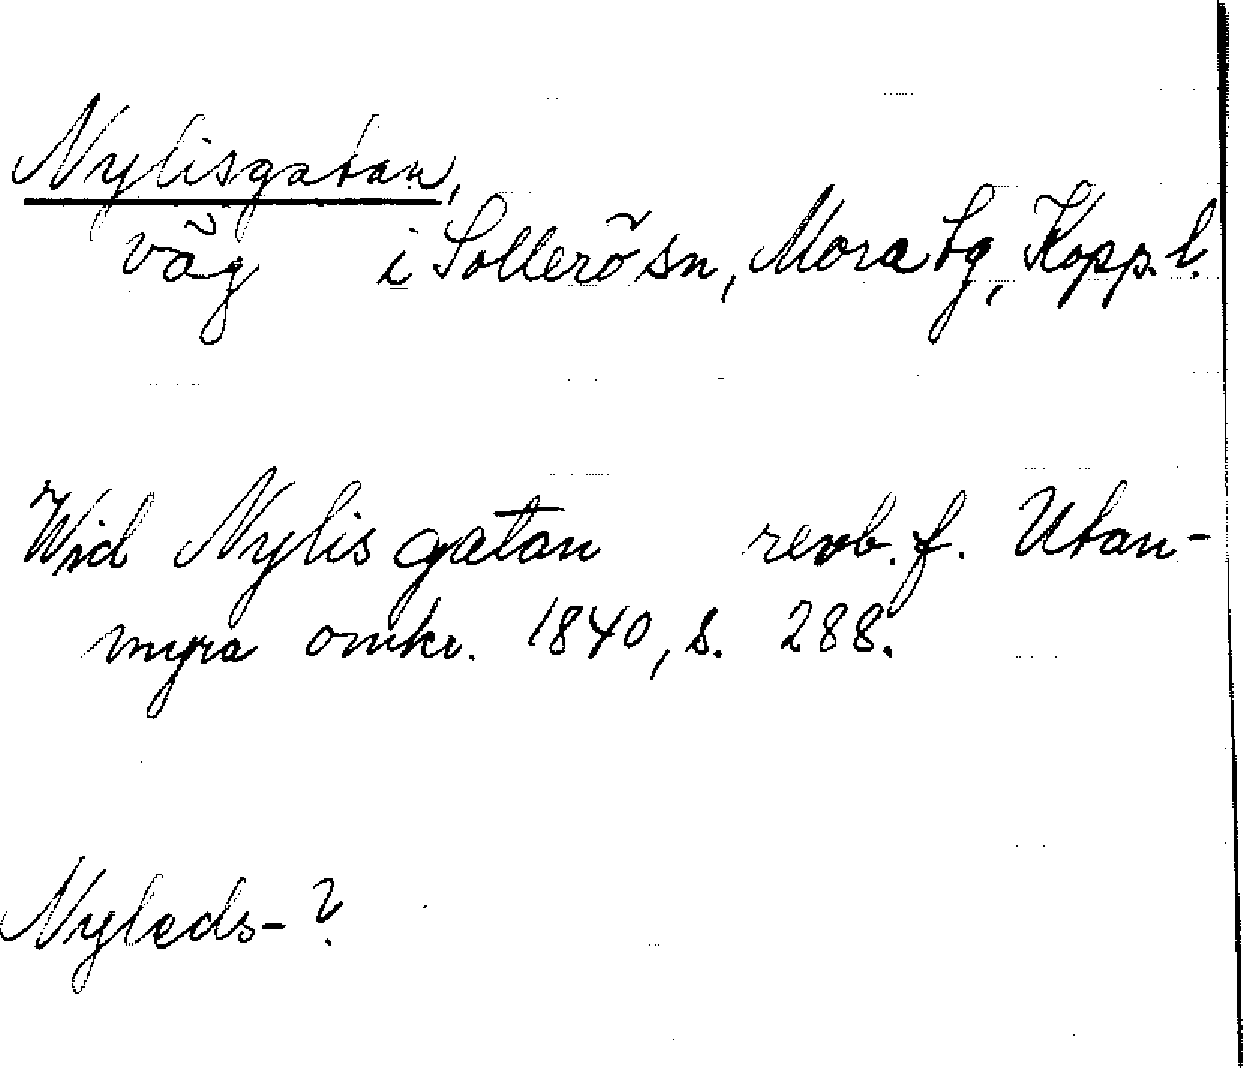 Nylisgatan,
väg i Sollerö sn, Mora tg, Kopp. l.
Wid Nylis gatan revb. f. Utan-
myra omkr. 1840, s. 288.
Nyleds-?